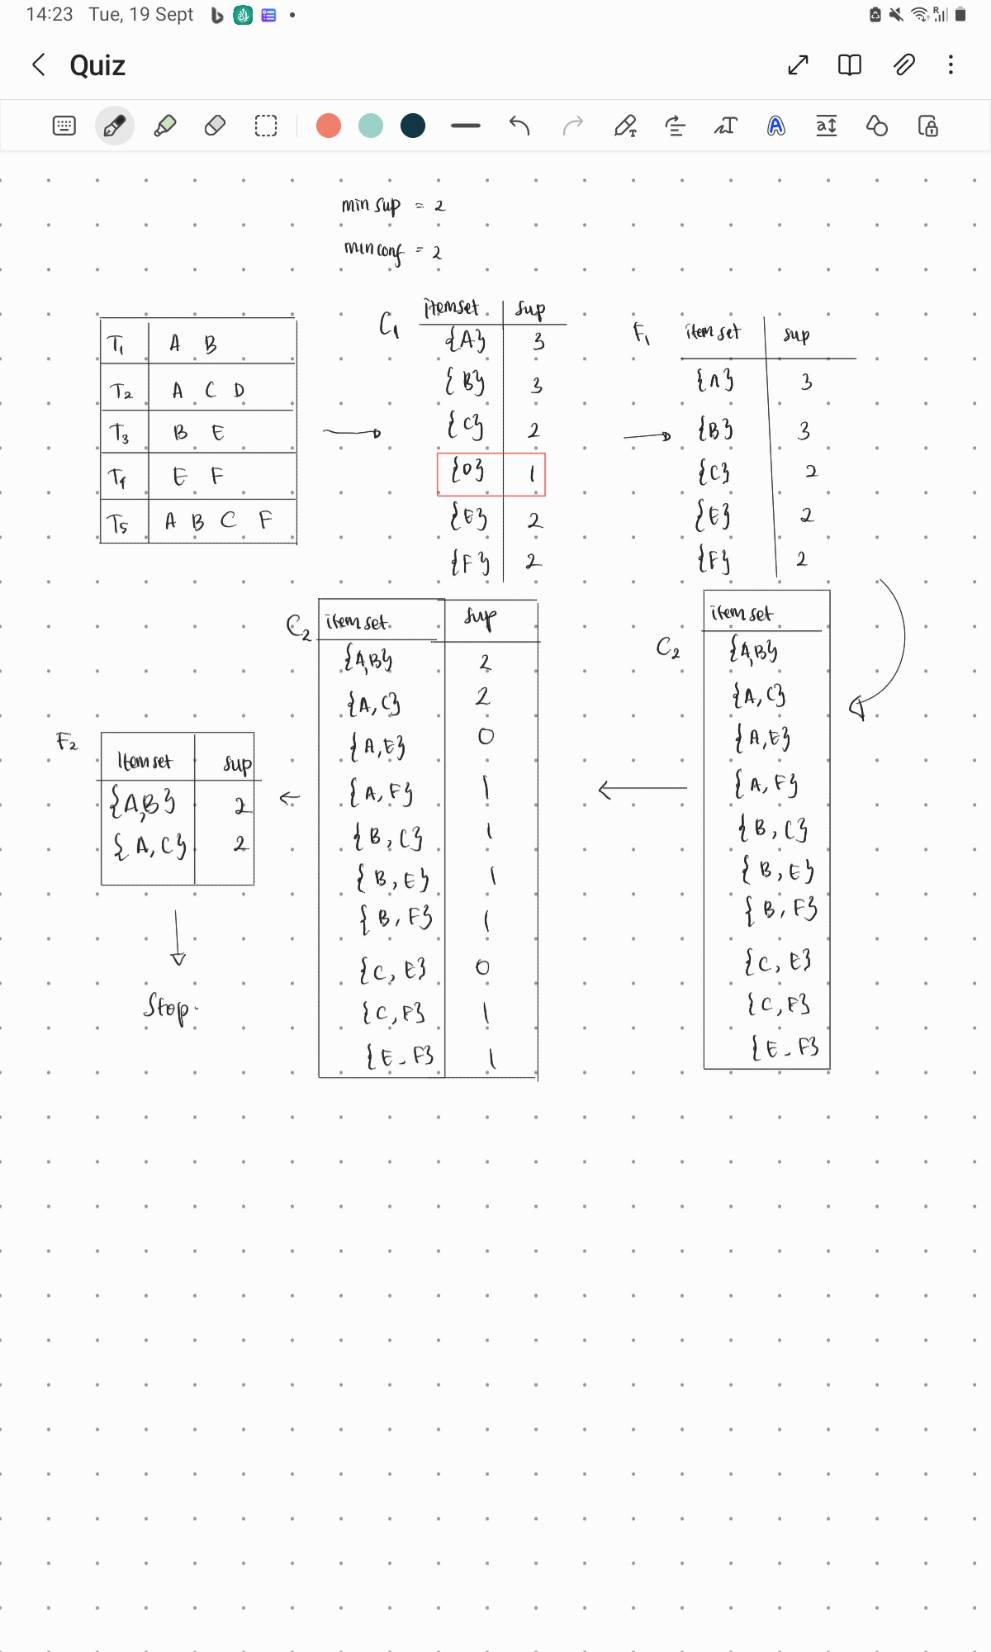 14:23 Tue, 19 Sept
Quiz
min sup = 2
min conf = 2
T1 A B
T2 A C D
T3 B E
T4 E F
T5 A B C F
C1 itemset sup
{A} 3
{B} 3
{C} 2
{D} 1
{E} 2
{F} 2
F1 item set sup
{A} 3
{B} 3
{C} 2
{E} 2
{F} 2
C2 item set
{A,B}
{A,C}
{A,E}
{A,F}
{B,C}
{B,E}
{B,F}
{C,E}
{C,F}
{E-F}
C2 item set sup
{A,B} 2
{A,C} 2
{A,E} 0
{A,F} 1
{B,C} 1
{B,E} 1
{B,F} 1
{C,E} 0
{C,F} 1
{E-F} 1
F2 Item set sup
{A,B} 2
{A,C} 2
Stop.